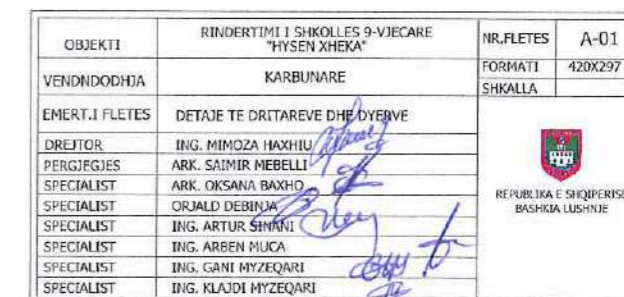 OBJEKTI RINDERTIMI I SHKOLLES 9-VJECARE "HYSEN XHEKA" NR.FLETES A-01
VENDNDODHJA KARBUNARE FORMATI 420X297
SHKALLA
EMERT.I FLETES DETAJE TE DRITAREVE DHE DYERVE
DREJTOR ING. MIMOZA HAXHIU
PERGJEGJES ARK. SAIMIR MEBELLI
SPECIALIST ARK. OKSANA BAXHO
SPECIALIST ORJALD DEBINJA
SPECIALIST ING. ARTUR SINANI
SPECIALIST ING. ARBEN MUCA
SPECIALIST ING. GANI MYZEQARI
SPECIALIST ING. KLAJDI MYZEQARI
REPUBLIKA E SHQIPERISE
BASHKIA LUSHNJE